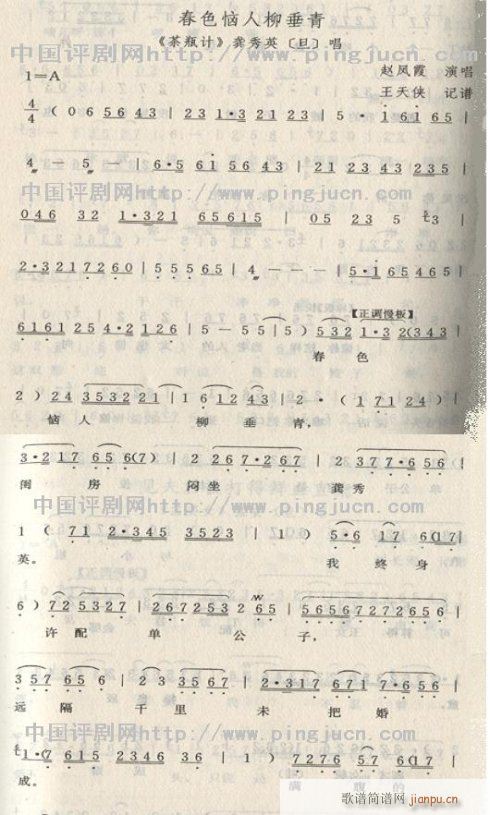 春色恼人柳垂青
《茶瓶计》龚秀英〔旦〕唱
1=A
赵凤霞 演唱
王天侠 记谱
4/4 ( 0 6 5 6 4 3 | 2 3 1·3 2 1 2 3 | 5 · 1 6 1 6 5 |
4 — 5 — | 6·5 6 1 5 6 4 3 | 2 1 2 3 4 3 2 3 5 |
中国评剧网http://www.pingjucn.com
0 4 6 3 2 1·3 2 1 6 5 6 1 5 | 0 5 2 3 5
2·3 2 1 7 2 6 0 | 5 5 5 6 5 | 4 — — — | 5·1 6 5 4 6 5 |
【正调慢板】
6 1 6 1 2 5 4·2 1 2 6 | 5 — 5 5 | 5 ) 5 3 2 1·3 2 (3 4 3
春 色
2 ) 2 4 3 5 3 2 2 1
恼 人 柳 垂 青，
3·2 1 7 6 5 6 (7) | 2 2 6 7·2 6 7 | 2 3 7 7·6 5 6
闺 房 闷 坐 龚 秀
中国评剧网http://www.pingjucn.com
1 ( 7 1 2·3 4 5 3 5 2 3 | 1 ) 5·6 1 7 6 (1 7
英。 我 终 身
6 ) 7 2 5 3 2 7 | 2 6 7 2 5 3 2 6 5 | 5 6 5 6 7 2 7 2 6 5 6
许 配 单 公 子，
3 5 7 6 5 6 | 2 3 5 3 2 7 | 2·3 1 7 1 7·6 5 6
远 隔 千 里 未 把 婚
中国评剧网http://www.pingjucn.com
1·(7 6 1 5 2 3 4 6 3 6 | 1 )
成。
歌谱简谱网
jianpu.cn